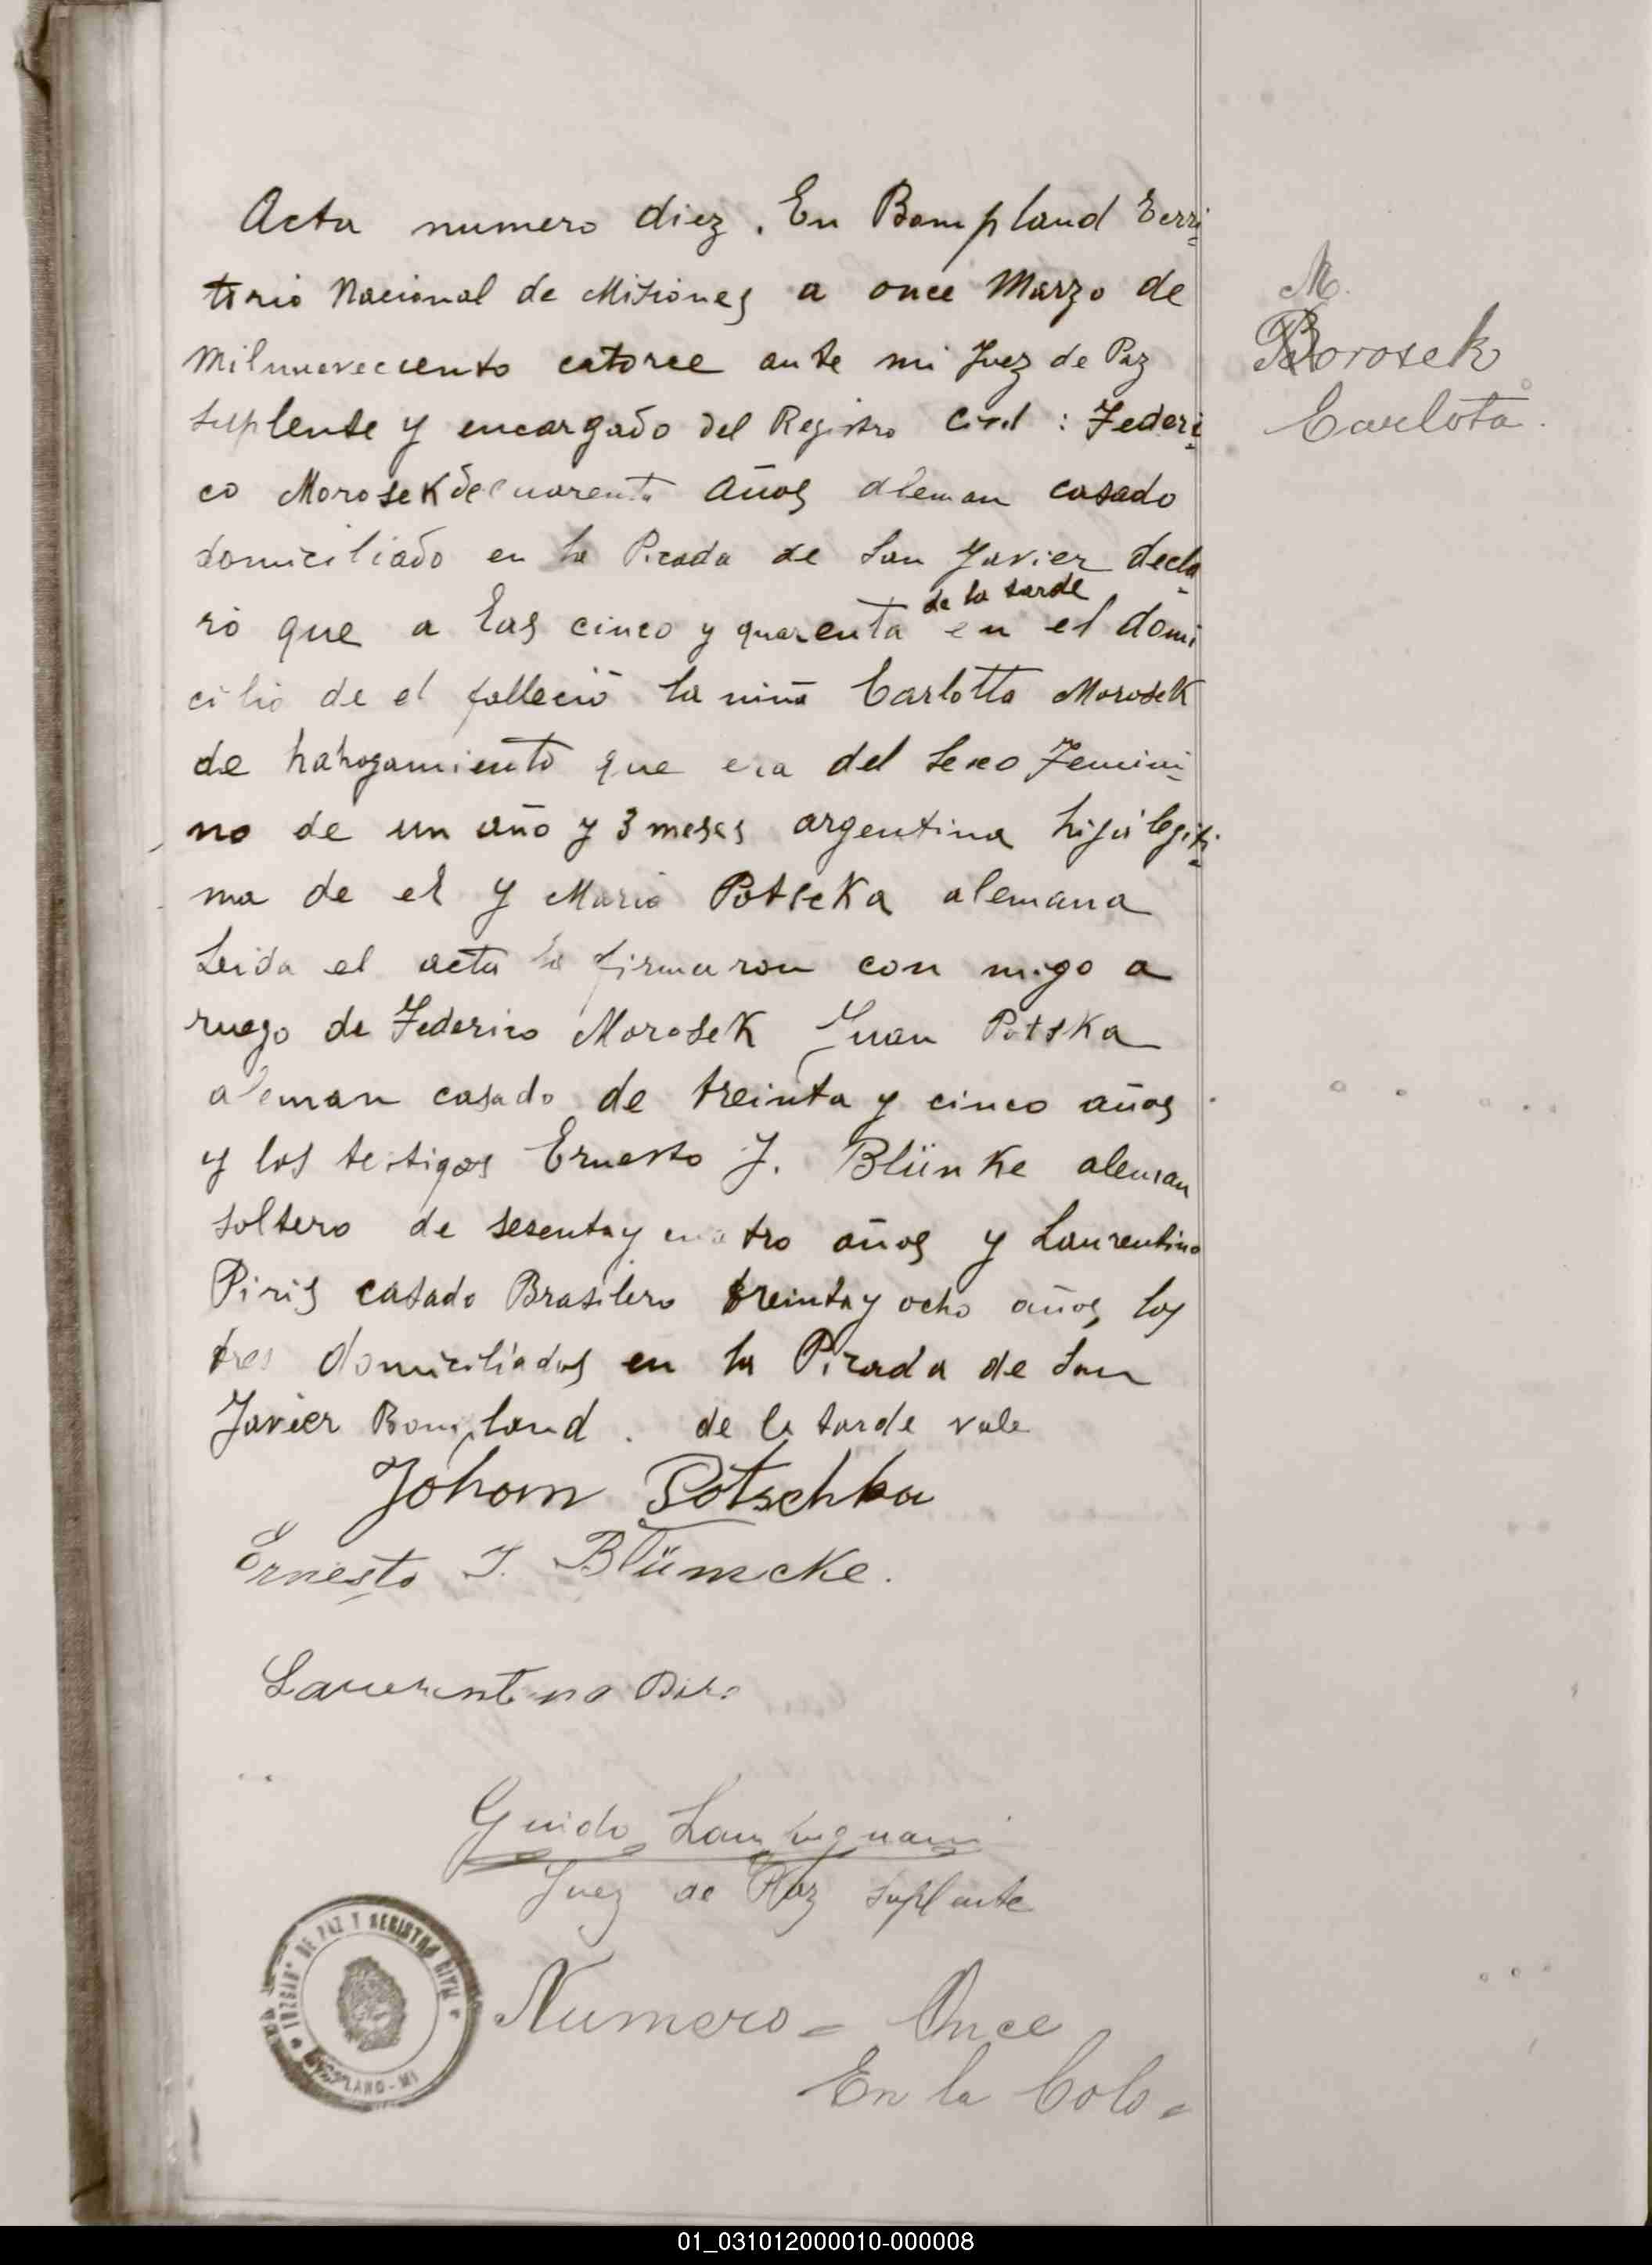 Acta numero diez. En Bompland Terri
torio Nacional de Misiones a once Marzo de
Milnuevecciento catorce ante mi Juez de Paz
suplente y encargado del Registro Civil : Federi
co Morosek de cuarenta años aleman casado
domiciliado en la Picada de San Javier decla
ró que a las cinco y quarenta de la tarde en el domi
cilio de el falleció la niña Carlotta Morosek
de hahogamiento que era del sexo Femini
no de un año y 3 meses argentina hija legiti
ma de el y Maria Potscka alemana
Leida el acta la firmaron con migo a
ruego de Federico Morosek Juan Potska
aleman casado de treinta y cinco años
y los testigos Ernesto J. Blünke aleman
soltero de sesenta y cuatro años y Laurentino
Piris casado Brasilero treinta y ocho años, los
tres domiciliados en la Picada de San
Javier Bompland. de la tarde vale
Johann Potschka
Ernesto J. Blümcke.
Laurentino
Guido
Juez de Paz suplente
Numero = Once
En la Colo =
M.
Borosek
Carlota.
JUZGADO DE PAZ Y REGISTRO CIVIL
BOMPLAND - MI
01_031012000010-000008